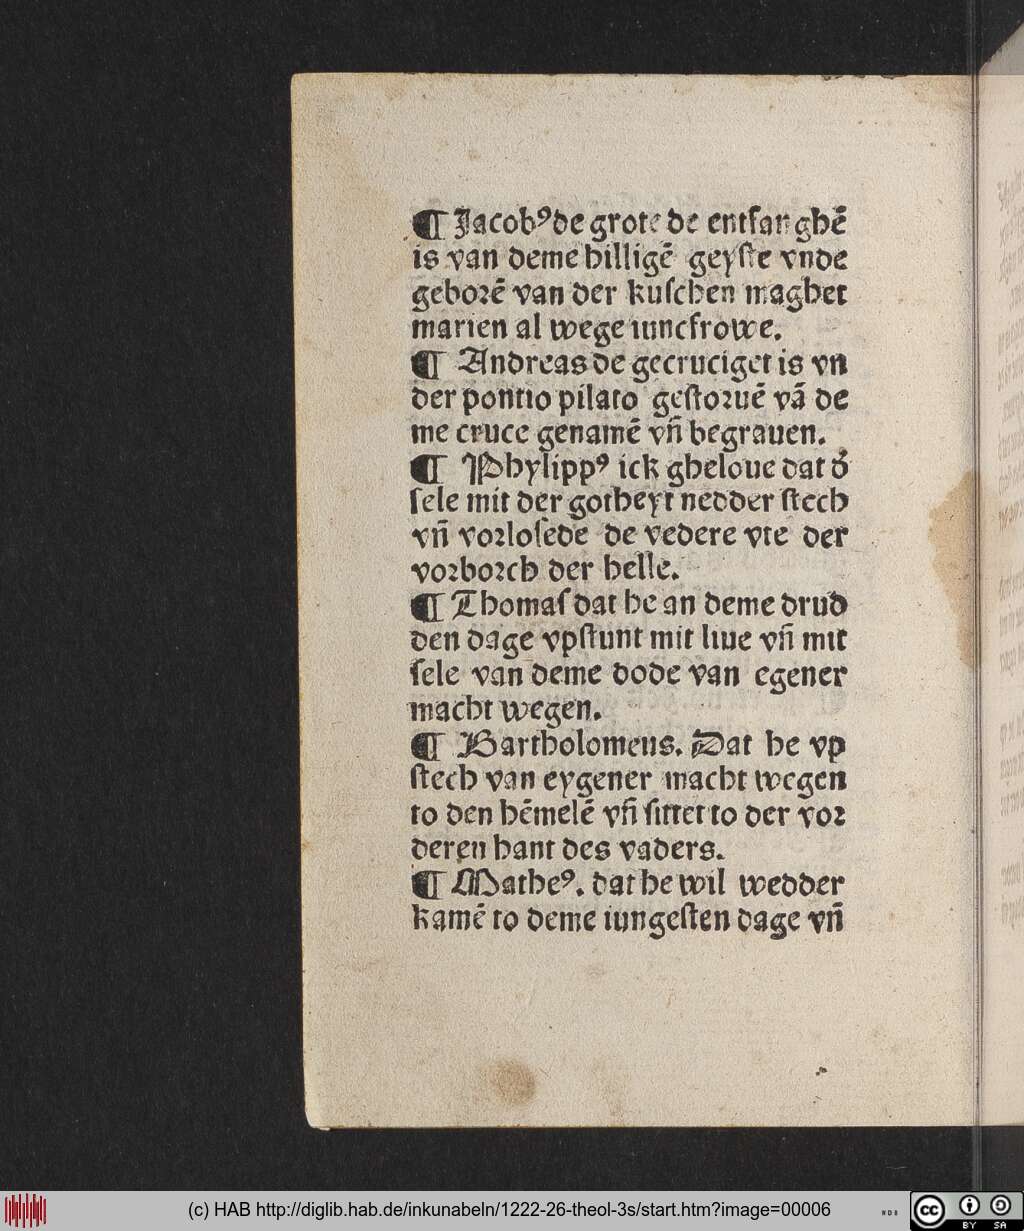 ¶ Jacobꝰ de grote de entfanghē
is van deme hilligē geyste vnde
geborē van der kuſchen maghet
marien al wege iuncfrowe.
¶ Andreas de gecruciget is vn
der pontio pilato geſtoruē vā de
me cruce genamē vn̄ begrauen.
¶ Phylippꝰ ick gheloue dat d̕
ſele mit der gotheyt nedder ſtech
vn̄ vorloſede de vedere vte der
vorborch der helle.
¶ Thomaſ dat he an deme drud
den dage vpſtunt mit liue vn̄ mit
ſele van deme dode van egener
macht wegen.
¶ Bartholomeus. Dat he vp
ſtech van eygener macht wegen
to den hēmelē vn̄ ſittet to der vor
deren hant des vaders.
¶ Matheꝰ. dat he wil wedder
kamē to deme iungeſten dage vn̄
(c) HAB http://diglib.hab.de/inkunabeln/1222-26-theol-3s/start.htm?image=00006
cc BY SA